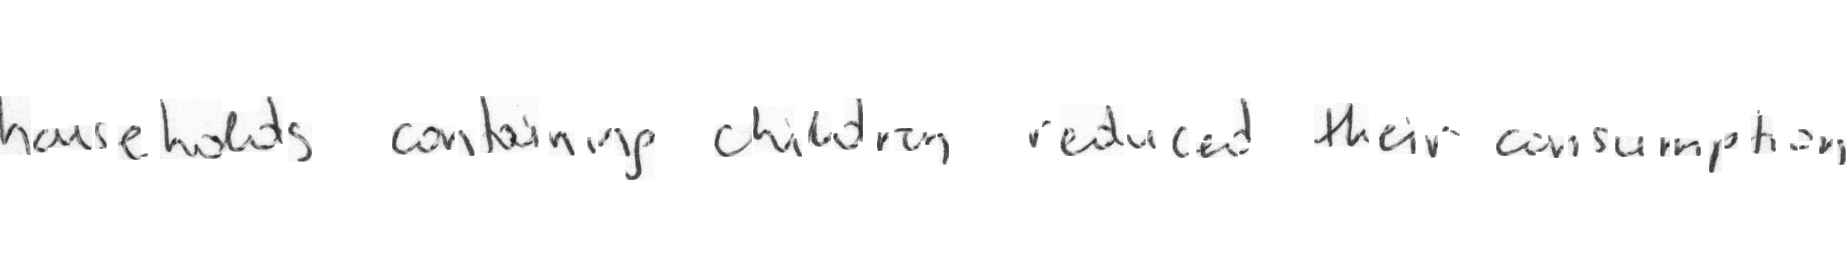 households containing children reduced their consumption